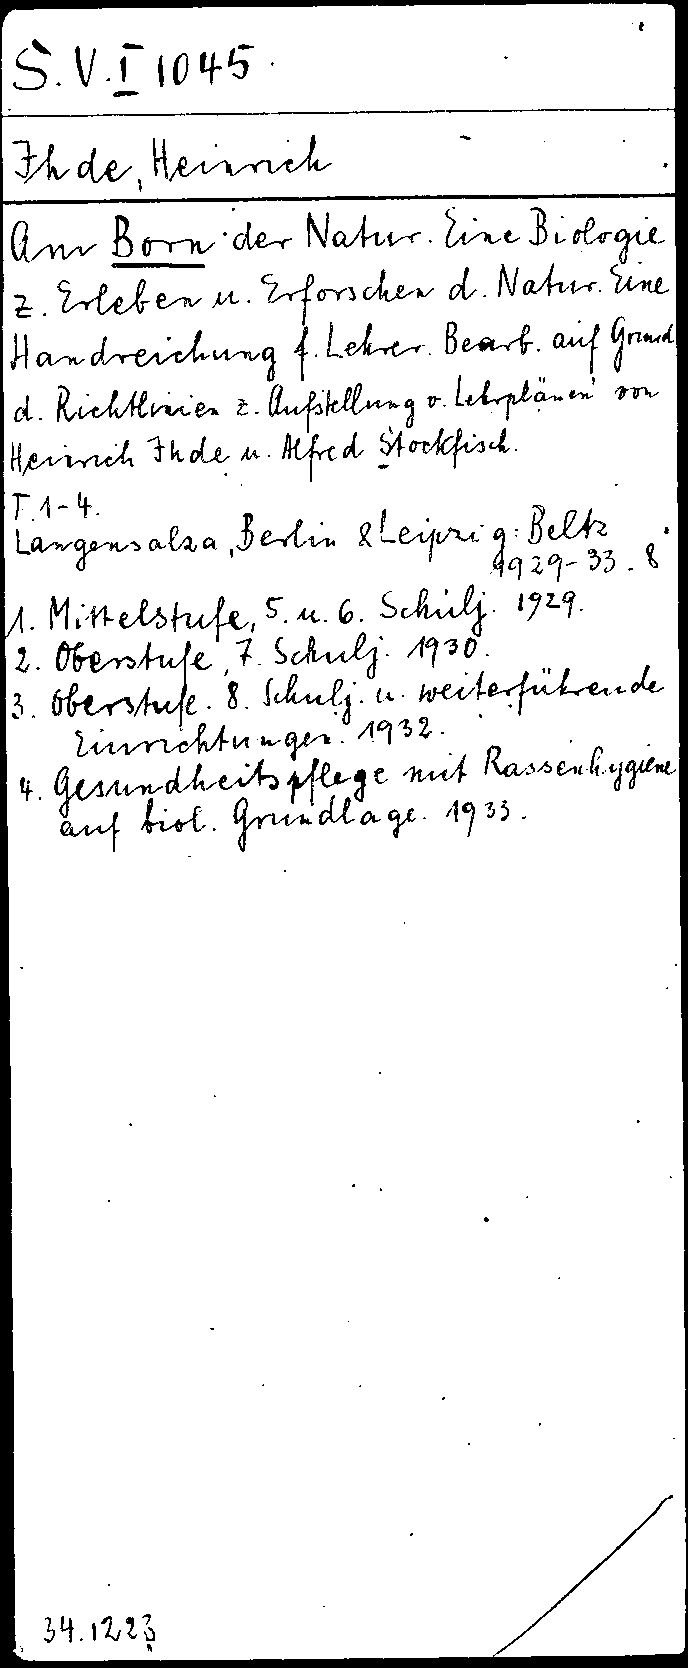 S.V.I 1045
Ihde, Heinrich
Am Born der Natur. Eine Biologie
z. Erleben u. Erforschen d. Natur. Eine
Handreichung f. Lehrer. Bearb. auf Grund
d. Richtlinien z. Aufstellung v. Lehrplänen von
Heinrich Ihde u. Alfred Stockfisch.
T. 1-4.
Langensalza, Berlin & Leipzig: Beltz
1929-33. 8°
1. Mittelstufe, 5. u. 6. Schulj. 1929.
2. Oberstufe, 7. Schulj. 1930.
3. Oberstufe. 8. Schulj. u. weiterführende
Einrichtungen. 1932.
4. Gesundheitspflege mit Rassenhygiene
auf biol. Grundlage. 1933.
34.1223